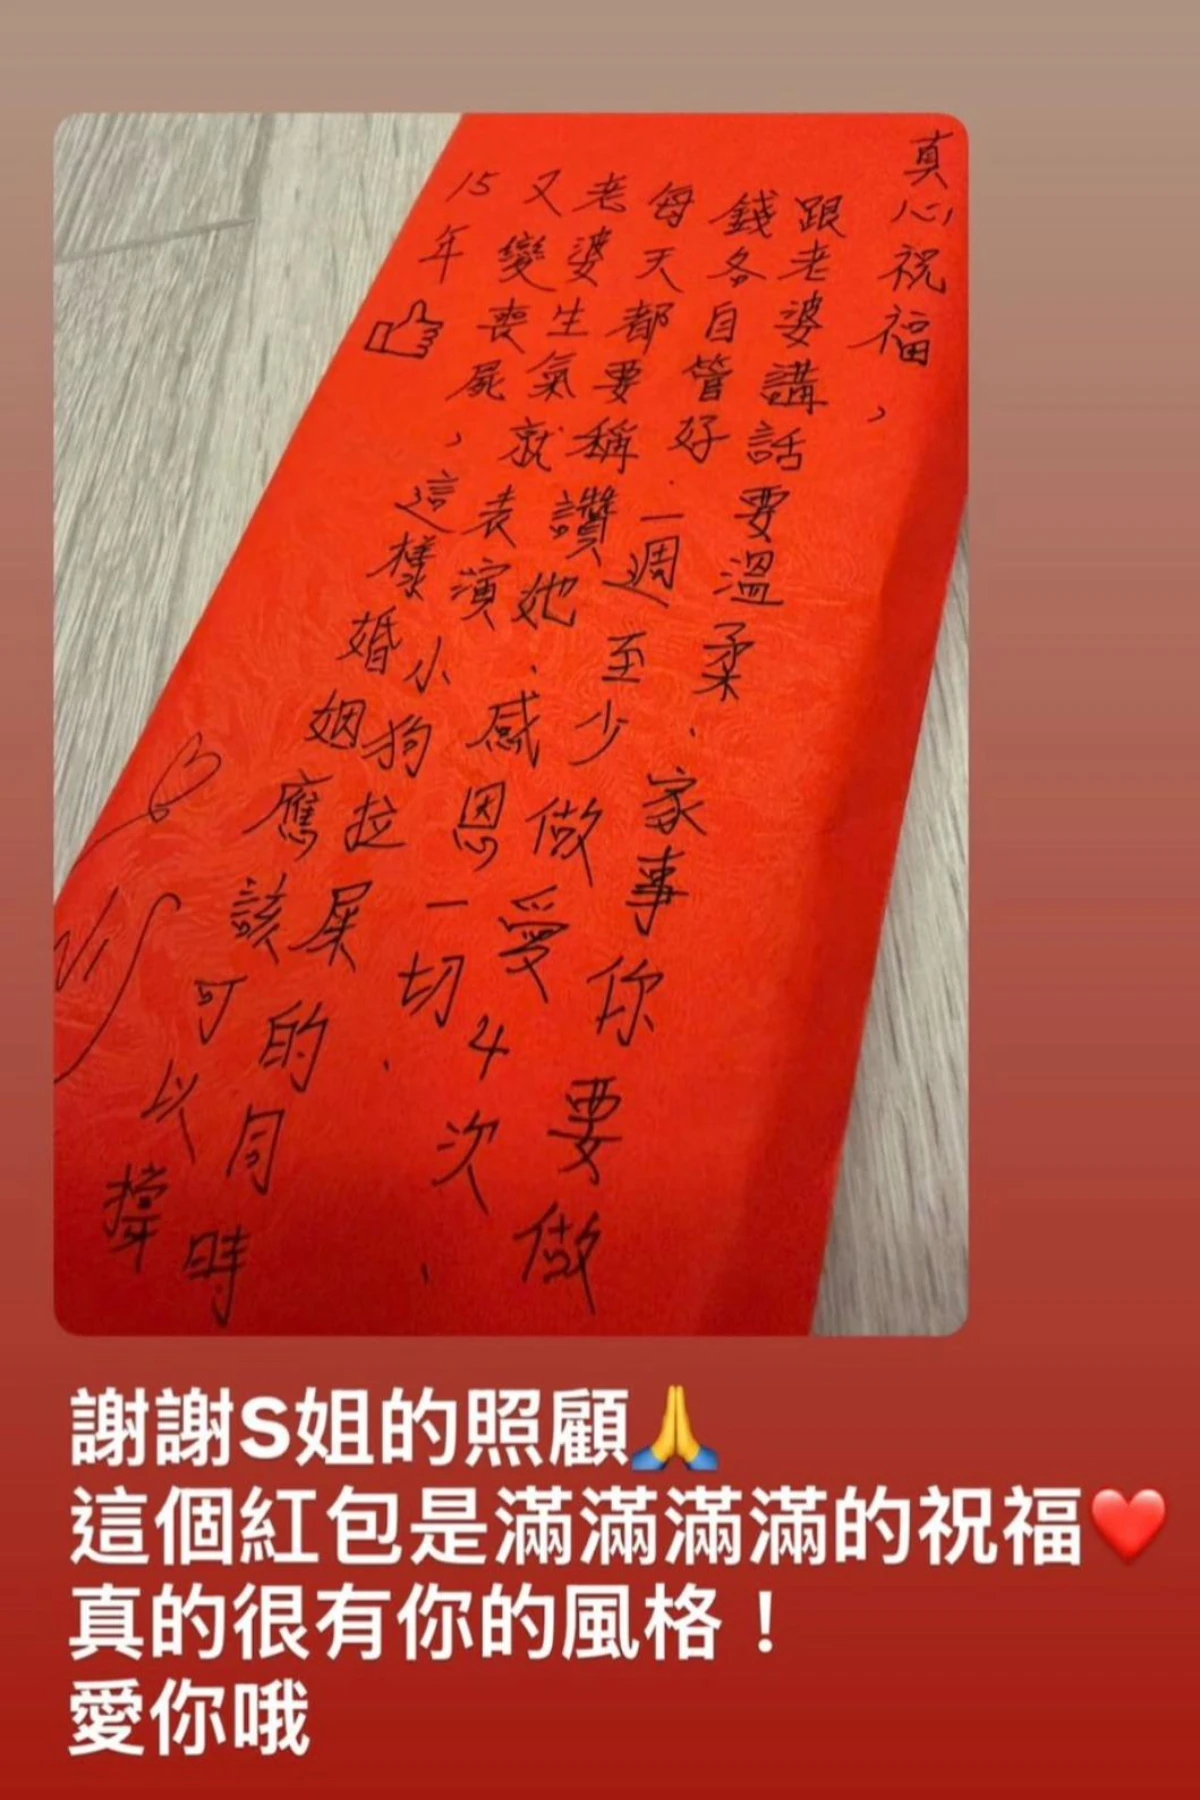 真心祝福,
跟老婆講話要溫柔、家事你要做
錢各自管好、一週至少做愛4次、
每天都要稱讚她、感恩一切、
老婆生氣就表演小狗拉屎的同時
又變喪屍,這樣婚姻應該可以撐
15年
謝謝S姐的照顧🙏
這個紅包是滿滿滿滿的祝福❤️
真的很有你的風格！
愛你哦